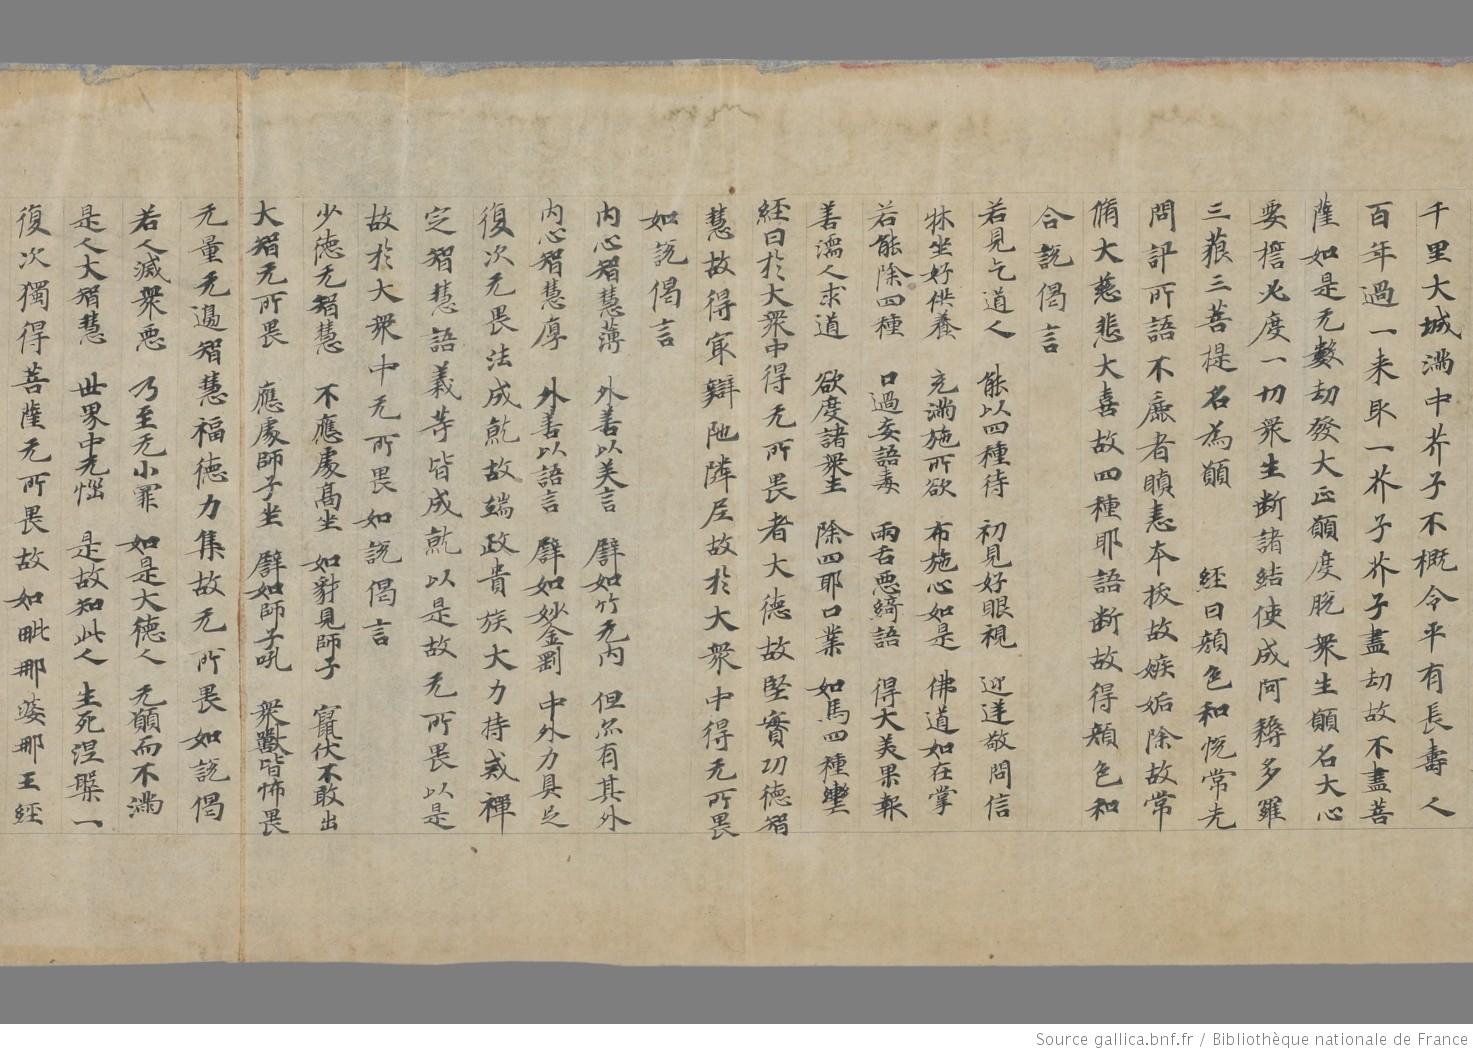 千里大城滿中芥子不概令平有長壽人
百年過一来取一芥子芥子盡劫故不盡菩
薩如是无數劫發大正願度脫衆生願名大心
要誓必度一切衆生斷諸結使成阿耨多羅
三藐三菩提名為願 經曰顔色和恱常先
問評所語不麁者瞋恚本拔故嫉妬除故常
脩大慈悲大喜故四種耶語斷故得顔色和
合說偈言
若見乞道人 能以四種待 初見好眼視 迎逆敬問信
牀坐好供養 充滿施所欲 布施心如是 佛道如在掌
若能除四種 口過妄語毒 兩舌惡綺語 得大美果報
善濡人求道 欲度諸衆生 除四耶口業 如馬四種轡
經曰於大衆中得无所畏者大德故堅實功德智
慧故得㝡辯陁隣尼故於大衆中得无所畏
如說偈言
內心智慧薄 外善以美言 譬如竹无內 但示有其外
內心智慧厚 外善以語言 譬如妙金剛 中外力具足
復次无畏法成就故端政貴族大力持戒禪
定智慧語義等皆成就以是故无所畏以是
故於大衆中无所畏如說偈言
少德无智慧 不應處髙坐 如豺見師子 竄伏不敢出
大智无所畏 應處師子坐 譬如師子吼 衆獸皆怖畏
无量无邊智慧福德力集故无所畏如說偈
若人滅衆惡 乃至无小罪 如是大德人 无願而不滿
是人大智慧 世界中无惱 是故知此人 生死涅槃一
復次獨得菩薩无所畏故如毗那婆那王經
Source gallica.bnf.fr / Bibliothèque nationale de France